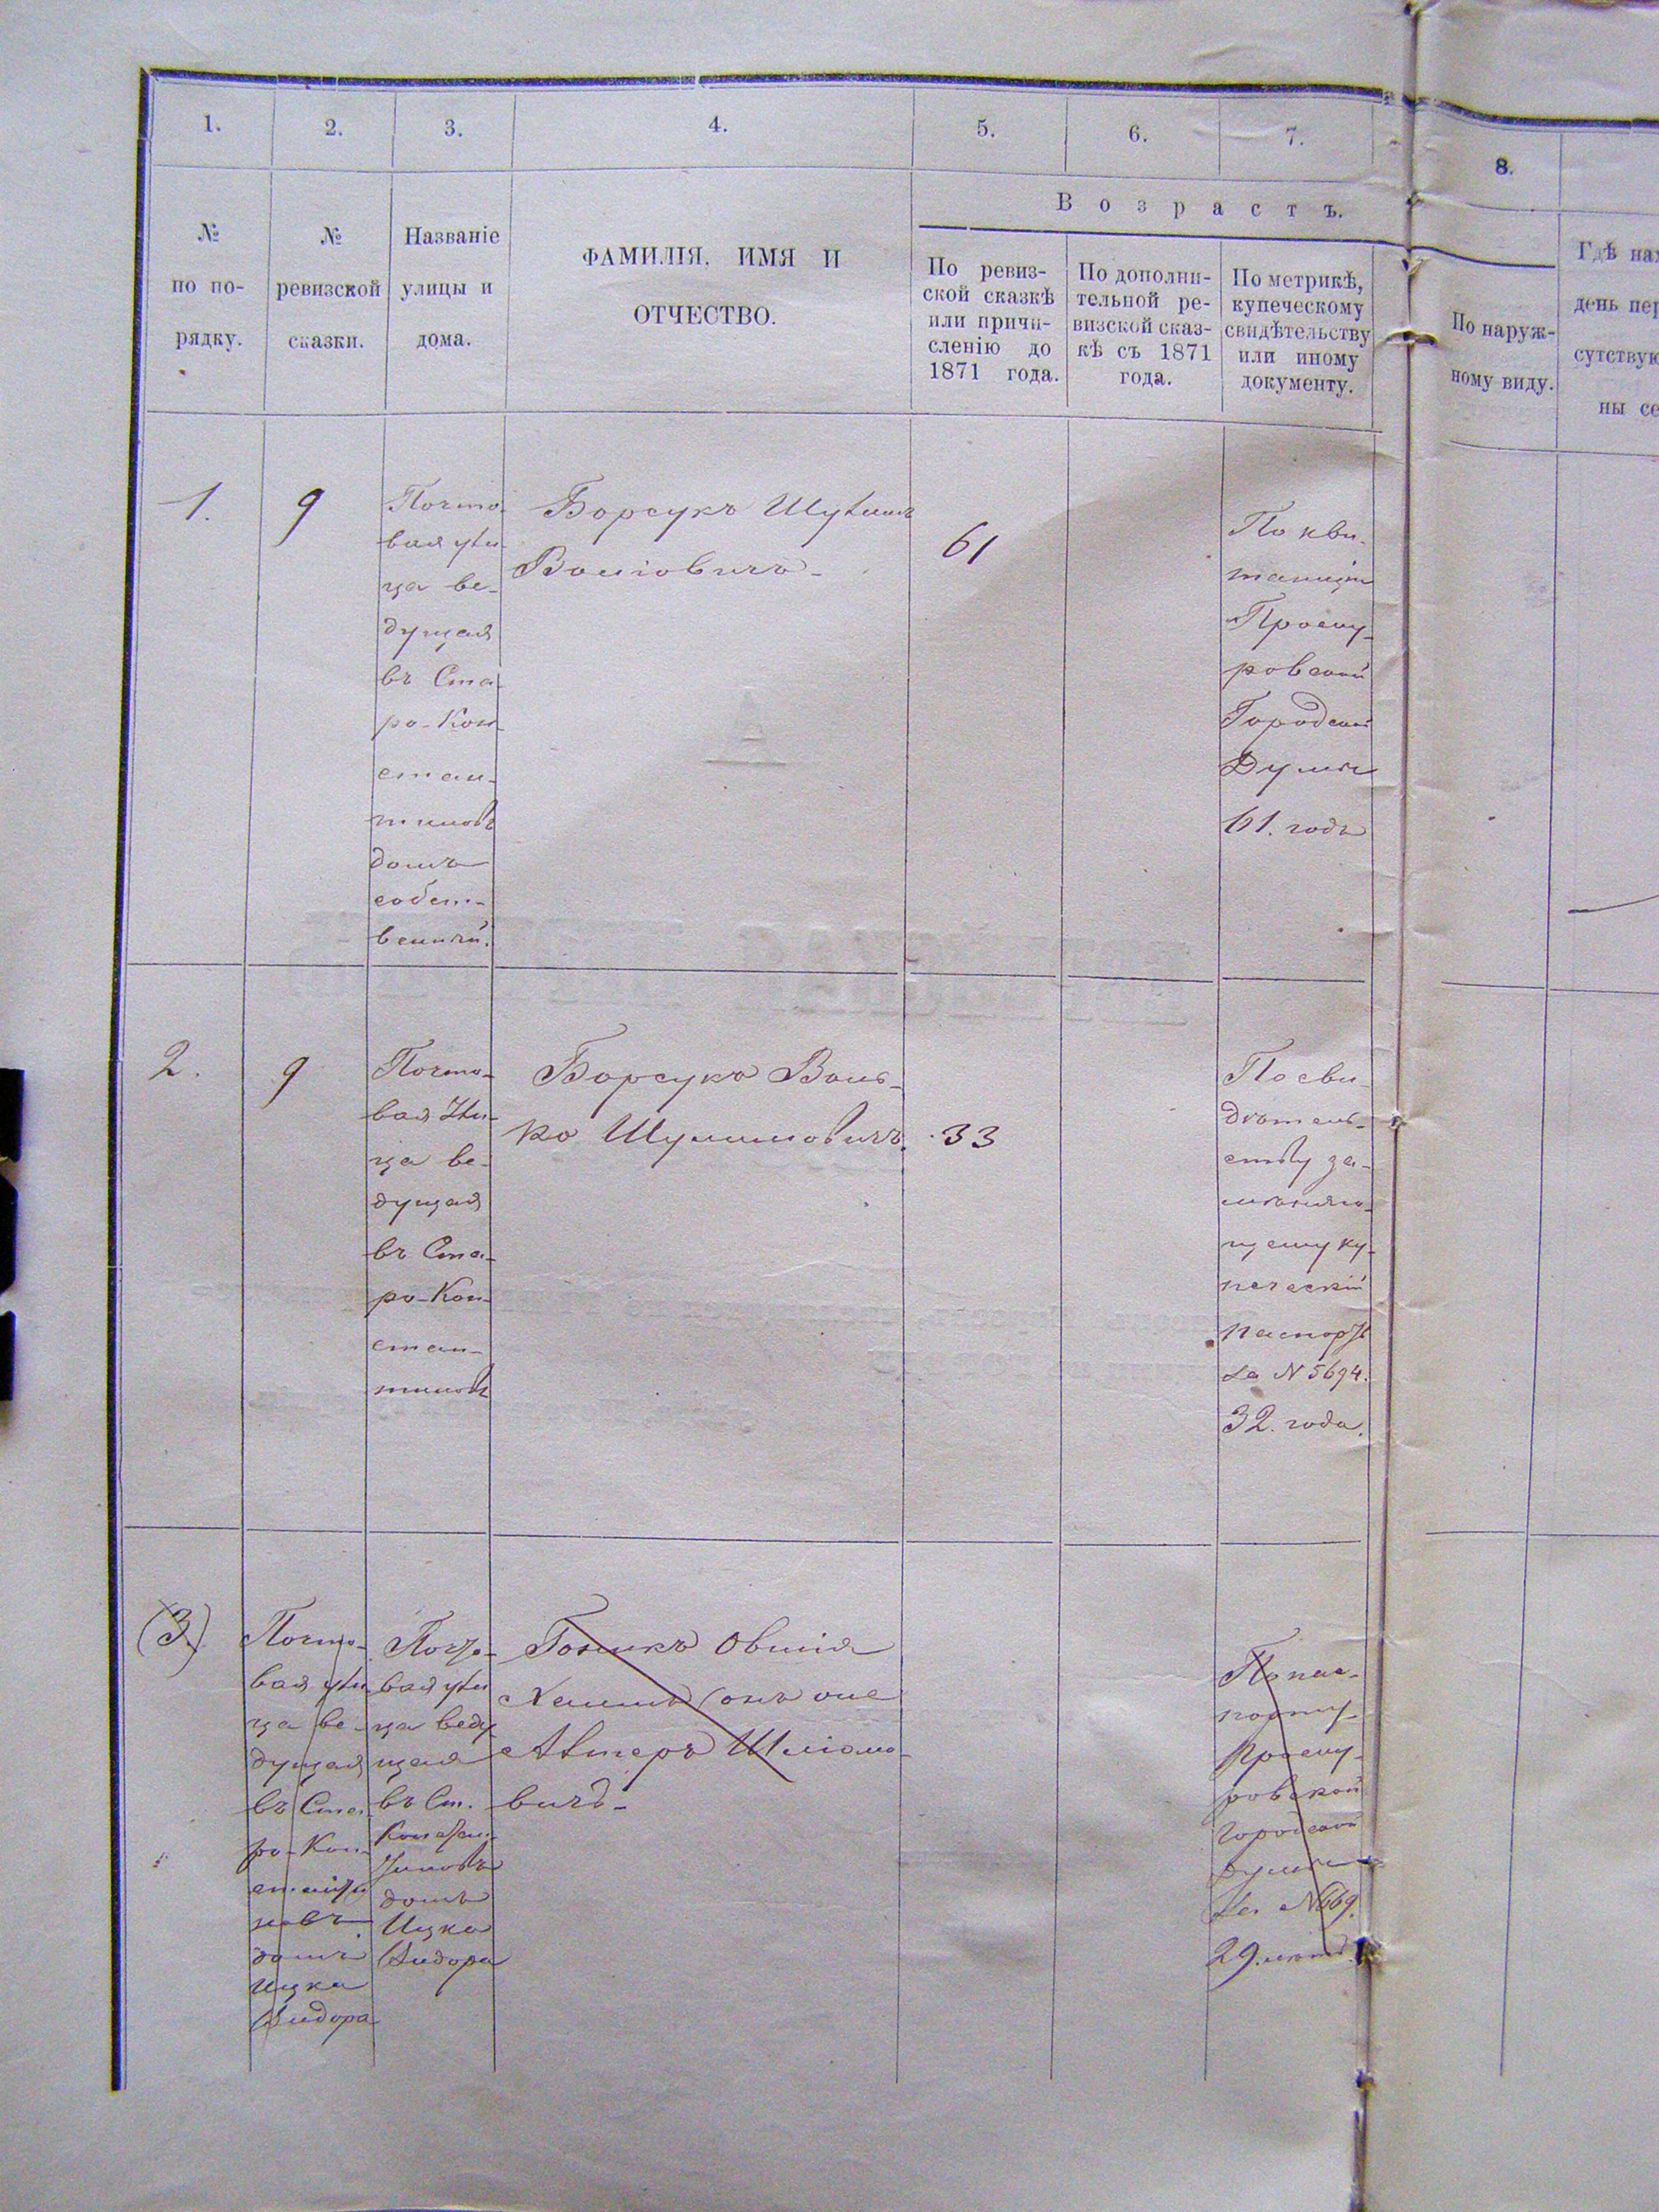 1.
2.
3.
4.
5.
6.
7.
8.
№
по по-
рядку.
№
ревизской
сказки.
Названіе
улицы и
дома.
ФАМИЛІЯ, ИМЯ И
ОТЧЕСТВО.
Возрастъ.
По ревиз-
ской сказкѣ
или причи-
сленію до
1871 года.
По дополни-
тельной ре-
визской сказ-
кѣ съ 1871
года.
По метрикѣ,
купеческому
свидѣтельству
или иному
документу.
По наруж-
ному виду.
Гдѣ нах
день пер
сутствую
ны се
1.
9
Почто-
вая ули-
ца ве-
дущая
въ Ста-
ро-Кон-
стан-
тиновъ
домъ
собст-
венный.
Борсукъ
61
По кви-
танціи
Проску-
ровской
Городской
Думы
61. годъ
2.
9
Почто-
вая Ули-
ца ве-
дущая
въ Ста-
ро-Кон-
стан-
тиновъ
Борсукъ Воль-
ко Шулимовичъ.
33
По сви-
дѣтель-
ству за-
мѣняю-
щему ку-
печескій
паспортъ
за N 5694.
32. года.
(3.)
Почто-
вая ули-
ца ве-
дущая
въ Ста-
ро-Кон-
станти
новъ
домъ
Ицка
Сидора
Почто-
вая ули
ца веду
щая
въ Ст.
Констан-
тиновъ
домъ
Ицка
Сидора
Овшія
(онъ же
вичъ-
По пас-
порту
Проску-
ровской
городской
думы
за N 669.
29. лѣтъ.